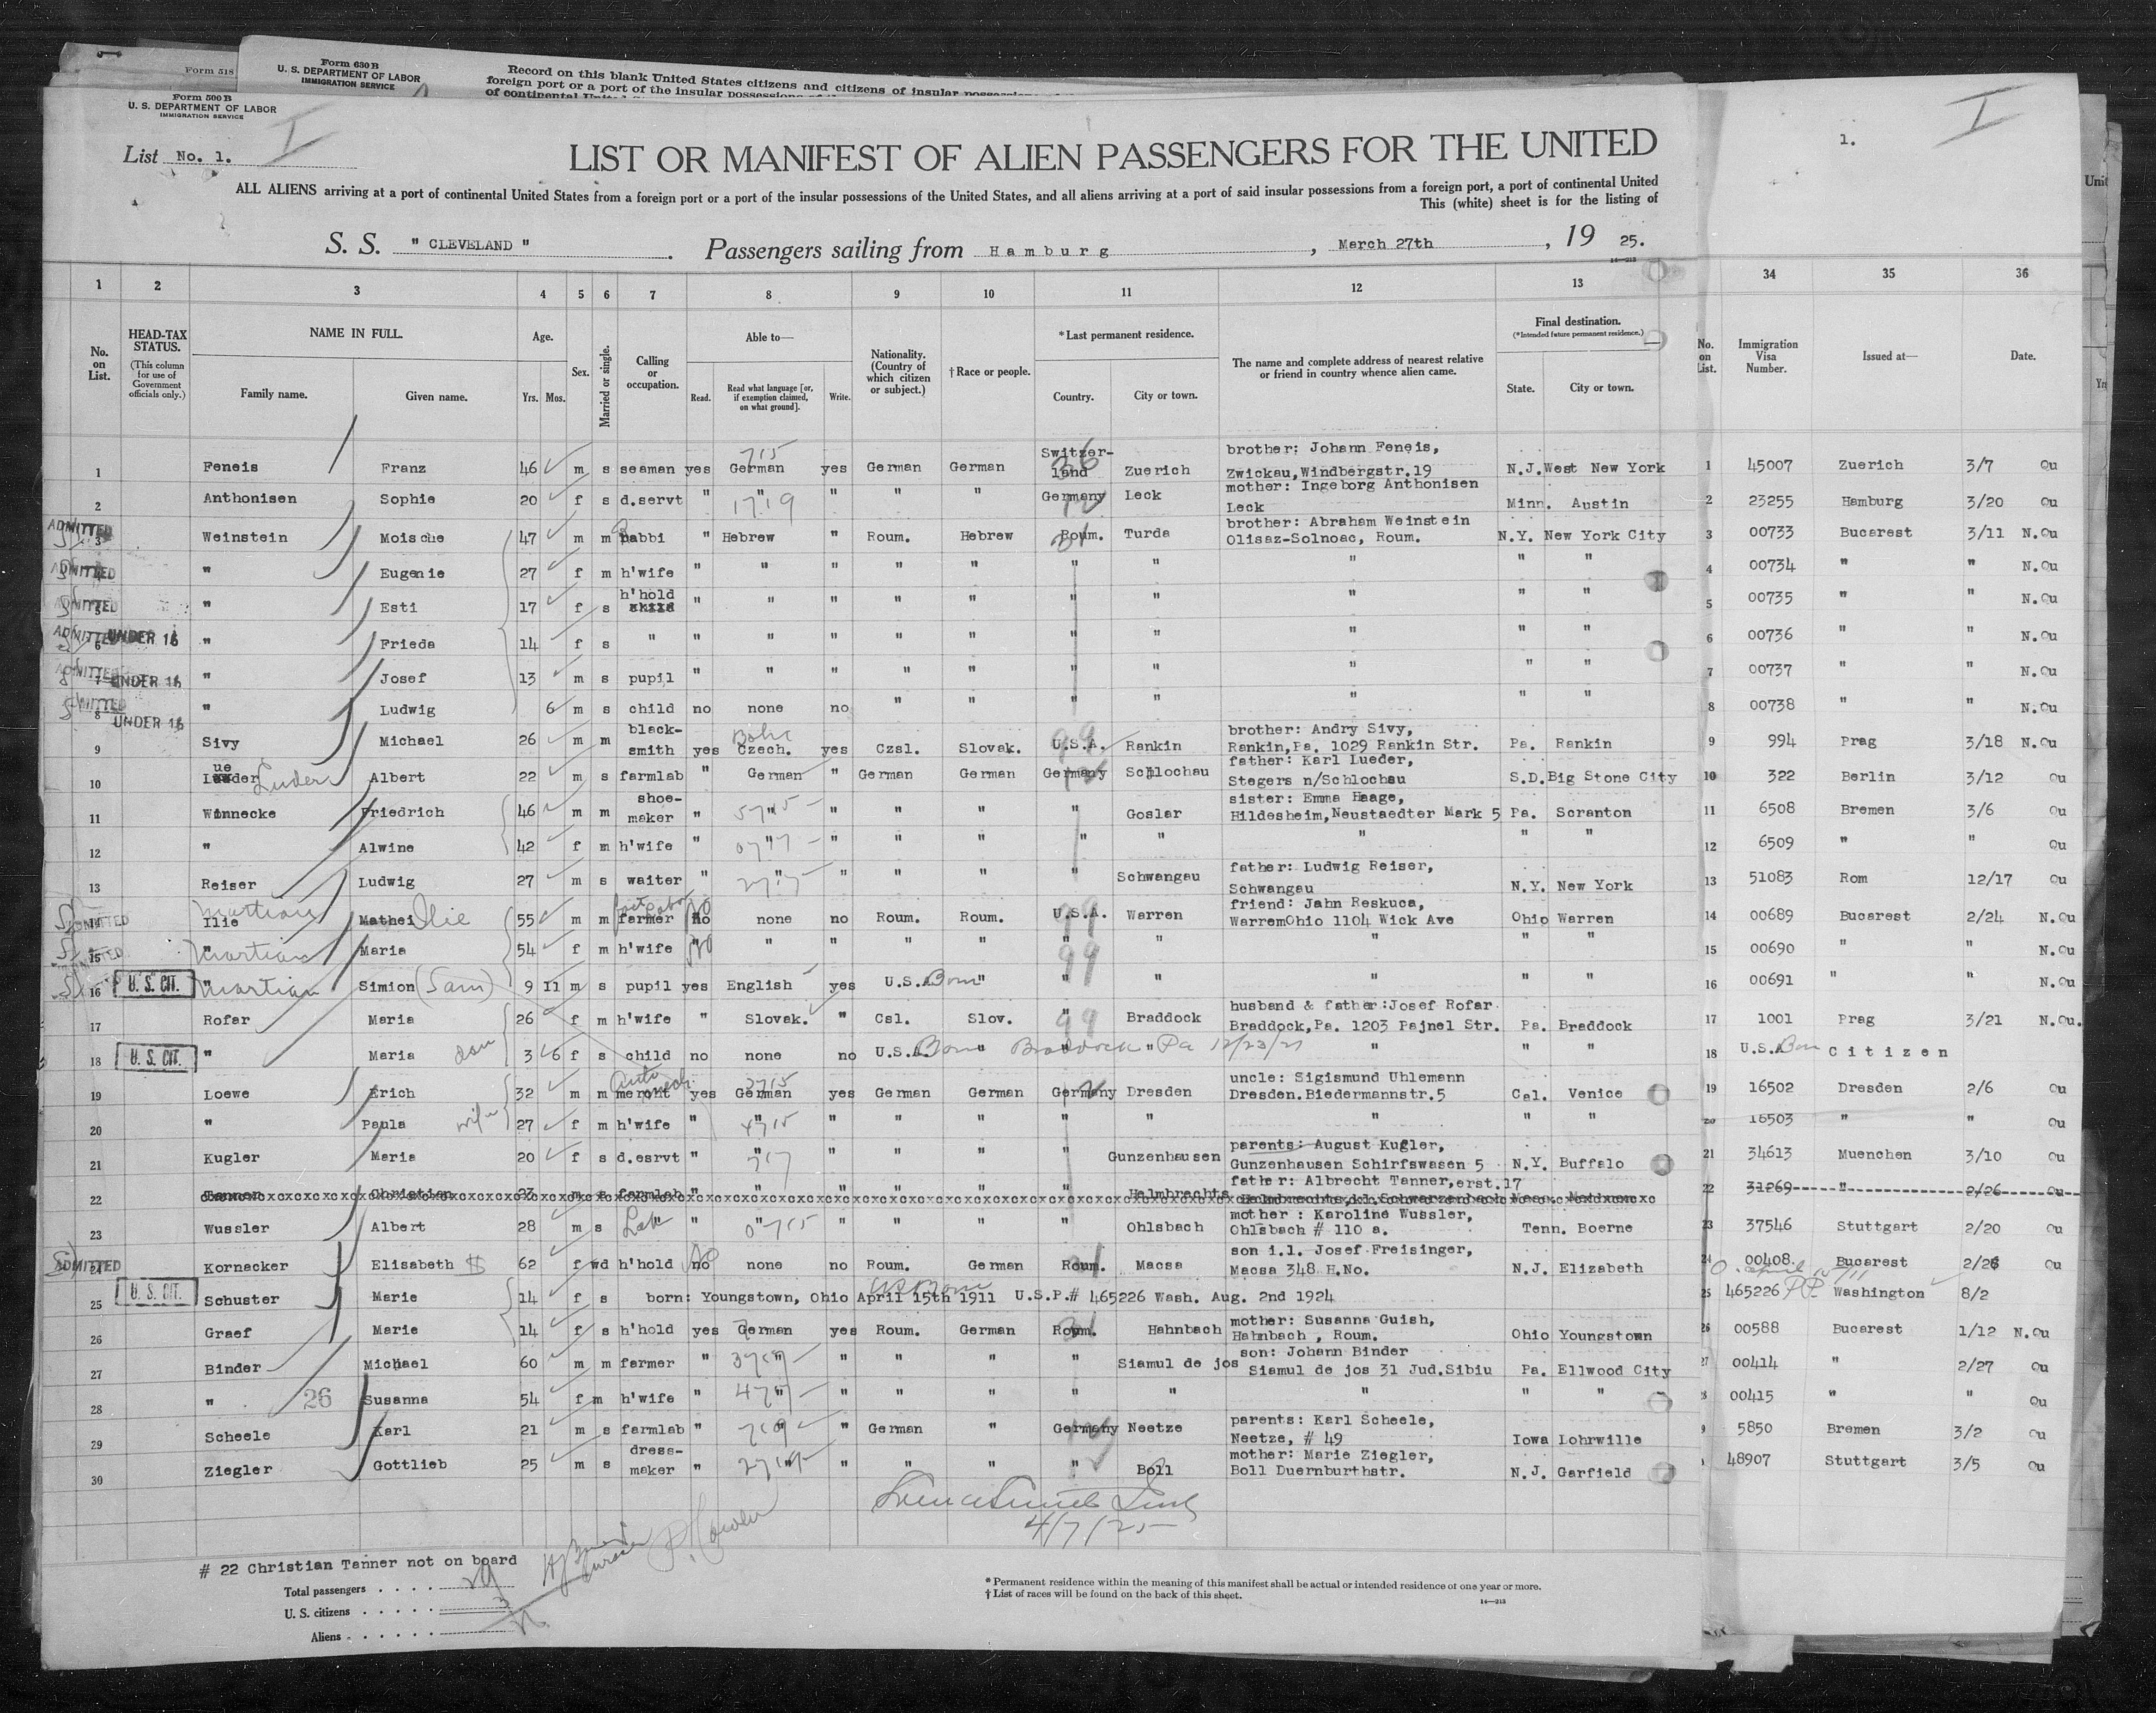 Form 518
Form 630 B
U. S. DEPARTMENT OF LABOR
IMMIGRATION SERVICE
Record on this blank United States citizens and citizens of insular
foreign port or a port of the insular possessions
of continental
Form 500 B
U. S. DEPARTMENT OF LABOR
IMMIGRATION SERVICE
I
I
1.
List No. 1.
LIST OR MANIFEST OF ALIEN PASSENGERS FOR THE UNITED
ALL ALIENS arriving at a port of continental United States from a foreign port or a port of the insular possessions of the United States, and all aliens arriving at a port of said insular possessions from a foreign port, a port of continental United
This (white) sheet is for the listing of
S. S. " CLEVELAND " . Passengers sailing from Hamburg , March 27th , 19 25.
14—213
1 2 3 4 5 6 7 8 9 10 11 12 13 34 35 36
No. on List.
HEAD-TAX STATUS.
(This column for use of Government officials only.)
NAME IN FULL.
Family name. Given name.
Age.
Yrs. Mos.
Sex.
Married or single.
Calling or occupation.
Able to—
Read. Read what language [or, if exemption claimed, on what ground]. Write.
Nationality. (Country of which citizen or subject.)
† Race or people.
*Last permanent residence.
Country. City or town.
The name and complete address of nearest relative or friend in country whence alien came.
Final destination.
(*Intended future permanent residence.)
State. City or town.
No. on List.
Immigration Visa Number.
Issued at—
Date.
1 Feneis Franz 46 m s seaman yes German yes German German Switzer-land Zuerich brother: Johann Feneis, Zwickau,Windbergstr.19 N.J. West New York 1 45007 Zuerich 3/7 Qu
2 Anthonisen Sophie 20 f s d.servt " " " " " Germany Leck mother: Ingeborg Anthonisen Leck Minn. Austin 2 23255 Hamburg 3/20 Qu
ADMITTED 3 Weinstein Moische 47 m m Rabbi " Hebrew " Roum. Hebrew Roum. Turda brother: Abraham Weinstein Olisaz-Solnoac, Roum. N.Y. New York City 3 00733 Bucarest 3/11 N.Qu
ADMITTED " Eugenie 27 f m h'wife " " " " " " " " " " 4 00734 " " N.Qu
ADMITTED 5 " Esti 17 f s h'hold " " " " " " " " " " 5 00735 " " N.Qu
ADMITTED 6 UNDER 16 " Frieda 14 f s " " " " " " " " " " " 6 00736 " " N.Qu
ADMITTED 7 UNDER 16 " Josef 13 m s pupil " " " " " " " " " " 7 00737 " " N.Qu
ADMITTED 8 UNDER 16 " Ludwig 6 m s child no none no " " " " " " " 8 00738 " " N.Qu
9 Sivy Michael 26 m m black-smith yes Czech. yes Czsl. Slovak. U.S.A. Rankin brother: Andry Sivy, Rankin,Pa. 1029 Rankin Str. Pa. Rankin 9 994 Prag 3/18 N.Qu
10 Lueder Luder Albert 22 m s farmlab " German " German German Germany Schlochau father: Karl Lueder, Stegers n/Schlochau S.D. Big Stone City 10 322 Berlin 3/12 Qu
11 Winnecke Friedrich 46 m m shoe-maker " " " " " " Goslar sister: Emma Haage, Hildesheim,Neustaedter Mark 5 Pa. Scranton 11 6508 Bremen 3/6 Qu
12 " Alwine 42 f m h'wife " " " " " " " " " " 12 6509 " " Qu
13 Reiser Ludwig 27 m s waiter " " " " " " Schwangau father: Ludwig Reiser, Schwangau N.Y. New York 13 51083 Rom 12/17 Qu
ADMITTED 14 Ilie Martian Mathei Ilie 55 m m farmer no none no Roum. Roum. U.S.A. Warren friend: Jahn Reskuca, WarremOhio 1104 Wick Ave Ohio Warren 14 00689 Bucarest 2/24 N.Qu
ADMITTED 15 " Martian Maria 54 f m h'wife " " " " " " " " " " 15 00690 " " N.Qu
16 U. S. CIT. " Martian Simion (Sam) 9 11 m s pupil yes English yes U.S.A. Born " " " " " " 16 00691 " " N.Qu
17 Rofar Maria 26 f m h'wife " Slovak. " Csl. Slov. " Braddock husband & father:Josef Rofar Braddock,Pa. 1203 Pajnel Str. Pa. Braddock 17 1001 Prag 3/21 N.Qu.
18 U. S. CIT. " Maria 3 6 f s child no none no U.S.A. Born Braddock Pa 12/23/21 " " " 18 U.S.A Born Citizen
19 Loewe Erich 32 m m mercht Auto mech. yes German yes German German Germany Dresden uncle: Sigismund Uhlemann Dresden.Biedermannstr.5 Cal. Venice 19 16502 Dresden 2/6 Qu
20 " Paula wife 27 f m h'wife " " " " " " " " " " 20 16503 " " Qu
21 Kugler Maria 20 f s d.esrvt " " " " " " Gunzenhausen parents: August Kugler, Gunzenhausen Schirfswasen 5 N.Y. Buffalo 21 34613 Muenchen 3/10 Qu
22 Tanner Christian 23 m s farmlab " " " " " " Helmbrechts father: Albrecht Tanner,erst.17 22 31269 " 2/26 Qu
23 Wussler Albert 28 m s Lab " " " " " " Ohlsbach mother : Karoline Wussler, Ohlsbach # 110 a. Tenn. Boerne 23 37546 Stuttgart 2/20 Qu
ADMITTED 24 Kornacker Elisabeth 62 f wd h'hold no none no Roum. German Roum. Macsa son i.l. Josef Freisinger, Macsa 348 H.No. N.J. Elizabeth 24 00408 Bucarest 2/26 Qu
25 U. S. CIT. Schuster Marie 14 f s born: Youngstown, Ohio April 15th 1911 U.S.P.# 465226 Wash. Aug. 2nd 1924 25 465226 P.P. Washington 8/2
26 Graef Marie 14 f s h'hold yes German yes Roum. German Roum. Hahnbach mother: Susanna Guish, Hahnbach , Roum. Ohio Youngstown 26 00588 Bucarest 1/12 N.Qu
27 Binder Michael 60 m m farmer " " " " " " Siamul de jos son: Johann Binder Siamul de jos 31 Jud.Sibiu Pa. Ellwood City 27 00414 " 2/27 Qu
28 " 26 Susanna 54 f m h'wife " " " " " " " " " " 28 00415 " " Qu
29 Scheele Karl 21 m s farmlab " " " German " Germany Neetze parents: Karl Scheele, Neetze, # 49 Iowa Lohrwille 9 5850 Bremen 3/2 Qu
30 Ziegler Gottlieb 25 m s dress-maker " " " " " " Boll mother: Marie Ziegler, Boll Duernburthstr. N.J. Garfield 48907 Stuttgart 3/5 Qu
4/7/25
# 22 Christian Tanner not on board
Total passengers . . . . 29
U. S. citizens . . . . . 3
Aliens . . . . . .
* Permanent residence within the meaning of this manifest shall be actual or intended residence of one year or more.
† List of races will be found on the back of this sheet.
14—213